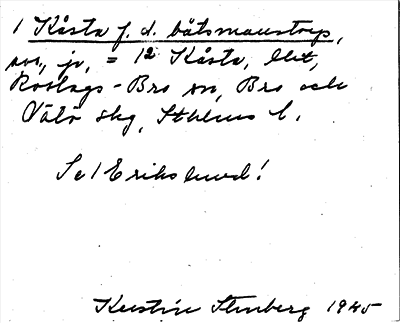 1 Kåsta f. d. båtsmanstorp,
sv., jv, = 12 Kåsta, hmt,
Roslags-Bro sn, Bro och
Vätö skg, Sthlms l.
Se 1 Erikslund!
Kerstin Stenberg 1945